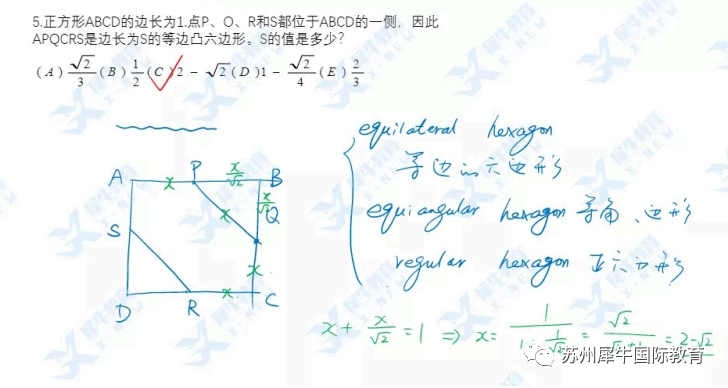 5.正方形ABCD的边长为1.点P、O、R和S都位于ABCD的一侧，因此
APQCRS是边长为S的等边凸六边形。S的值是多少?
(A) √2/3 (B) 1/2 (C) 2 - √2 (D) 1 - √2/4 (E) 2/3
equilateral hexagon
等边的六边形
equiangular hexagon 等角、边形
regular hexagon 正六边形
A x P x/√2 B
x/√2
S x Q
x
D R x C
x + x/√2 = 1 ⇒ x = 1/(1+1/√2) = √2/(√2+1) = 2-√2
苏州犀牛国际教育
犀牛教育
X-NEW